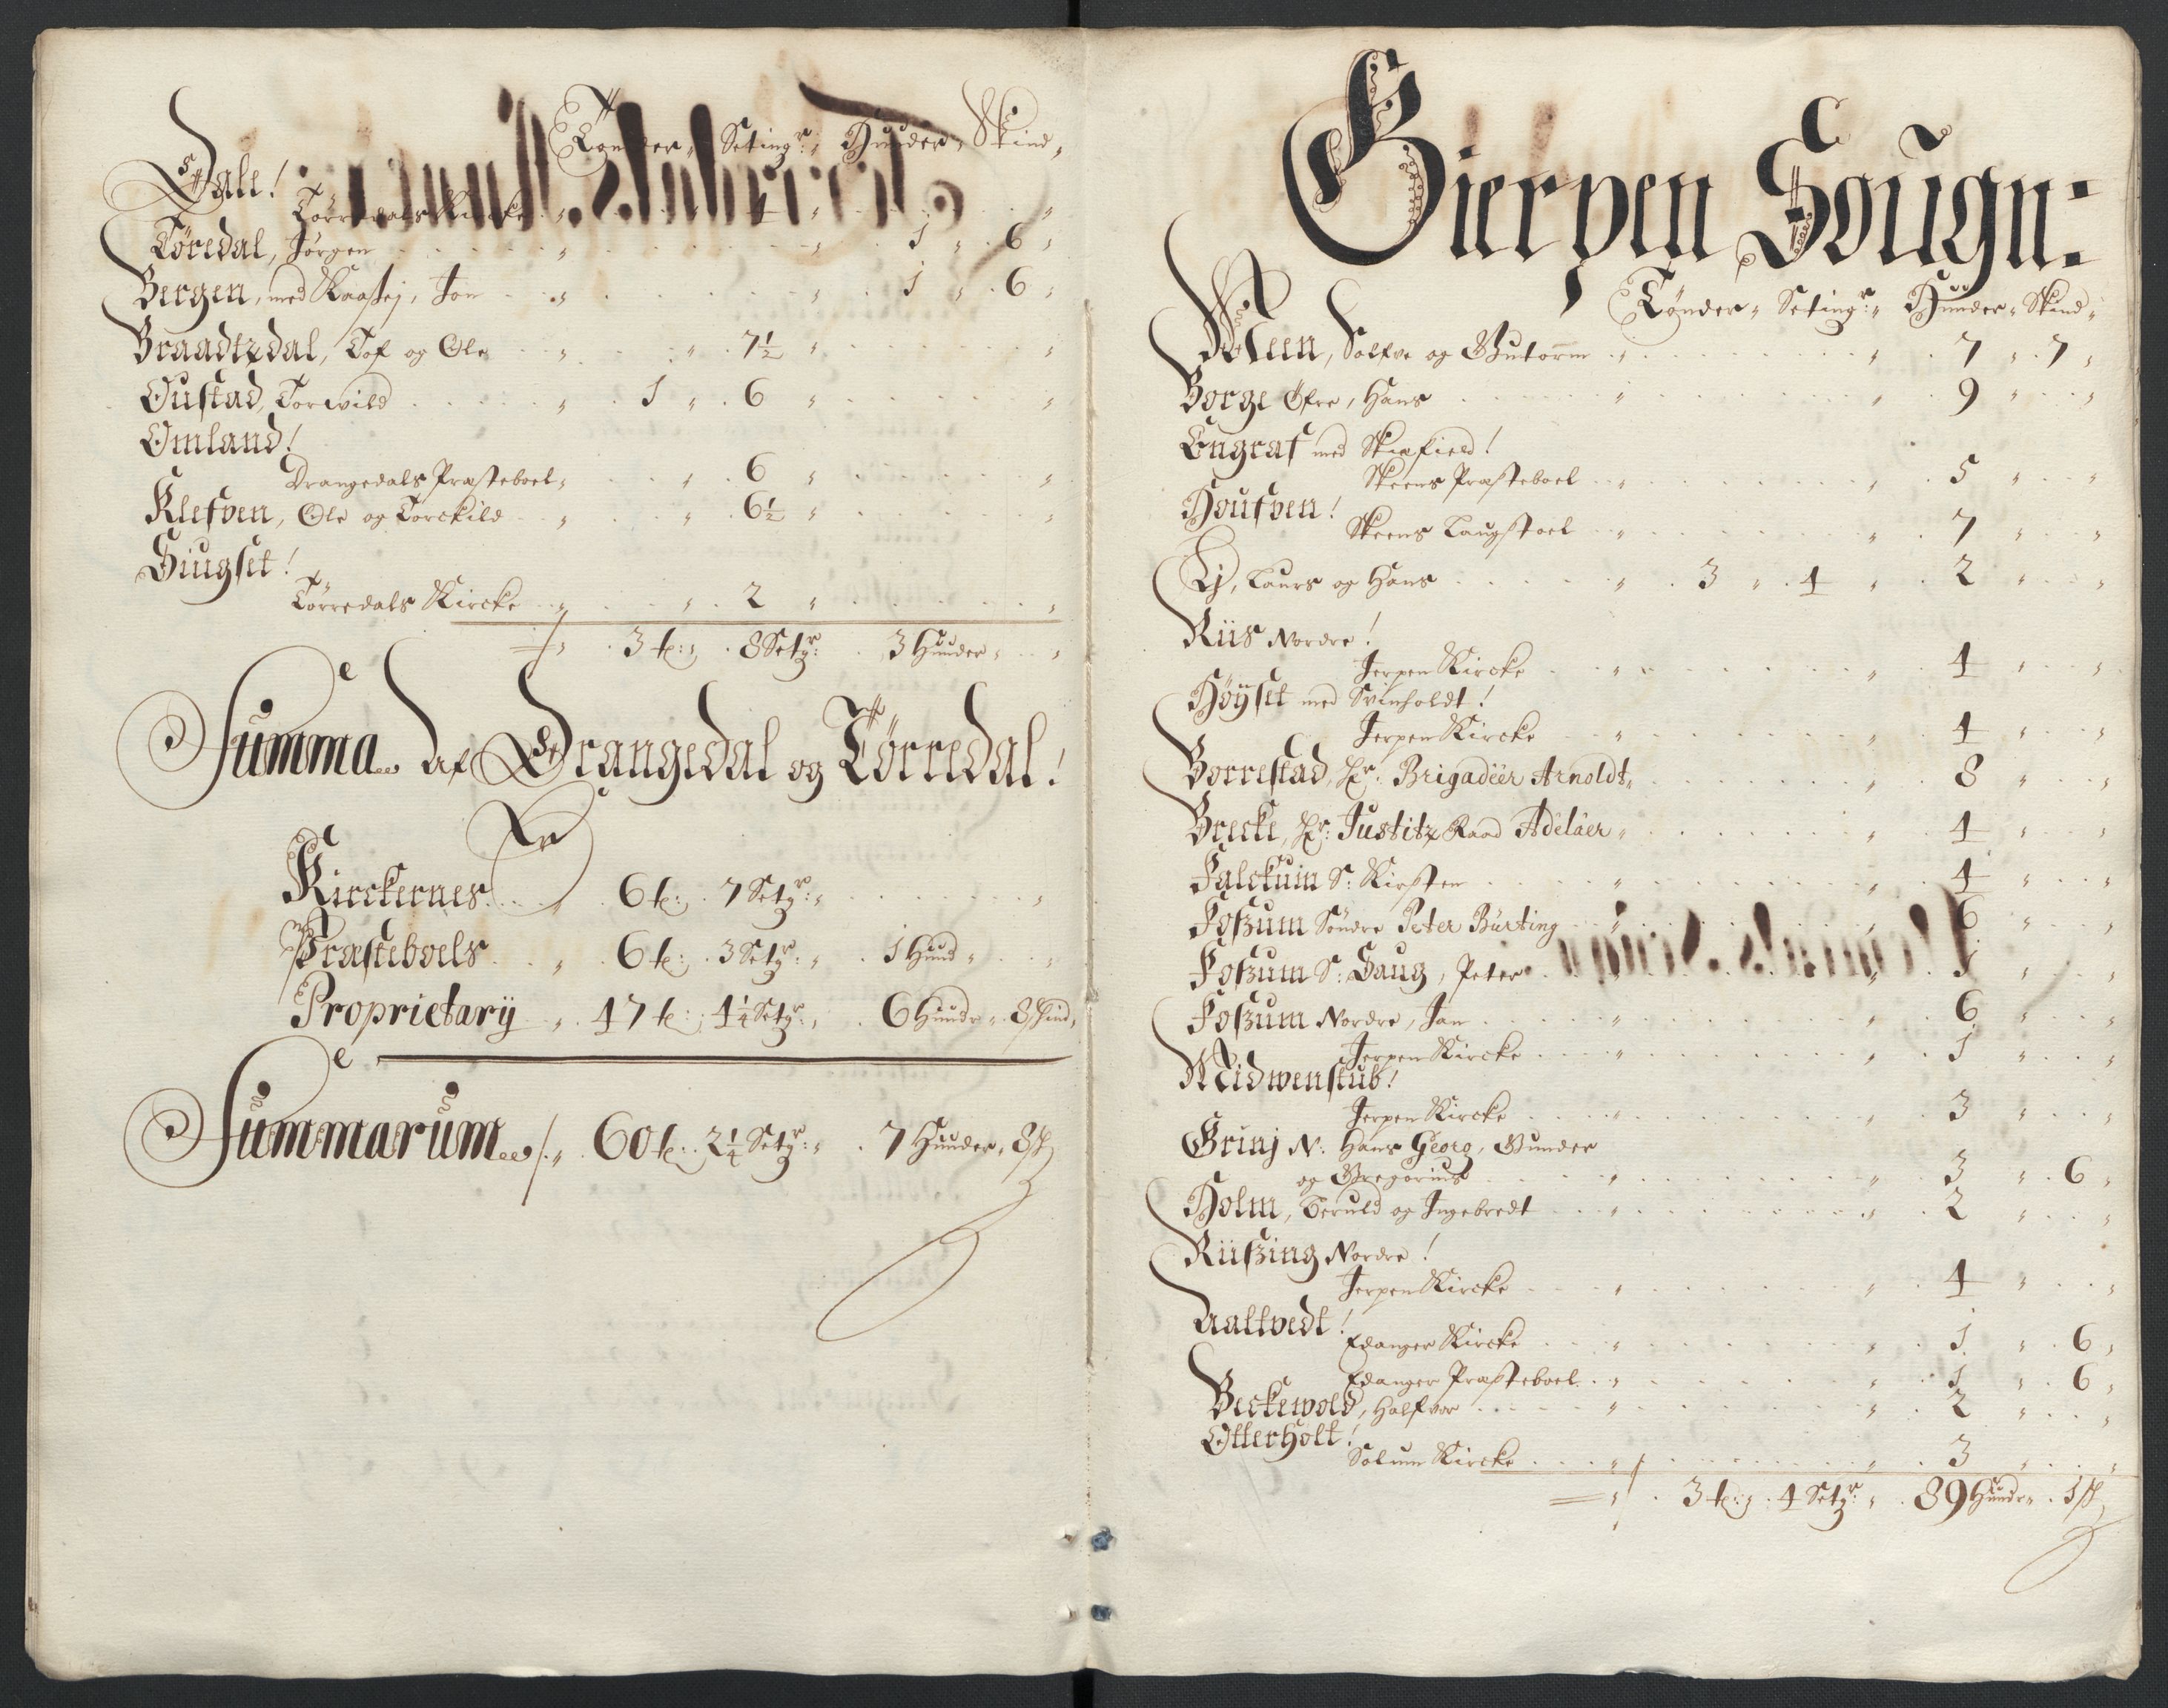 Tønder, Setingr: Hunder, Skind,
Dale!
Törredals Kircke 4
Töredal, Jörgen 1 6
Bergen, med Kaaßej, Jon 1 6
Braadtzdal, Tof og Ole 7½
Oustad, Torwild 1 6
Omland!
Drangedals Præsteboel 6
Klefven, Ole og Torckild 6½
Siugset!
Törredals Kircke 2
3 t: 8 Setgr: 3 Hunder
Summa af Drangedal og Törredal!
Kirckernes 6 t: 7 Setgr:
Præsteboels 6 t: 3 Setgr: 1 Hund
Proprietarij 47 t: 4¼ Setgr: 6 Hundr 8 skind
Summarum 60 t: 2¼ Setgr: 7 Hunder, 8 sk
Gierpen Sougn:
Tönder, Setingr: Hunder, Skind,
Meen, Solfve og Gutorm 7 7
Borge Öfre, Hans 9
Engraf med Skiefield!
Skeens Præsteboel 5
Houfven!
Skeens Laugstoel 7
Lj, Laurs og Hans 3 4 2
Riis Nordre!
Jerpen Kircke 4
Höyset med Svinholdt!
Jerpen Kircke 4
Borrestad, Hr: Brigadëer Arnoldt 8
Brecke, Hr: Justitz Raad Adelaer 4
Falckum S: Kirsten 4
Foßum Söndre Peter Bürting 6
Foßum S: Saug, Peter 1
Foßum Nordre, Jan 6
Jerpen Kircke 1
Midwenstub!
Jerpen Kircke 3
Grinj N: Hans Georg, Gunder
og Gregorius 3 6
Holm, Teruld og Ingebredt 2
Riißing Nordre!
Jerpen Kircke 4
Aaltvedt!
Edanger Kircke 1 6
Edanger Præsteboel 1 6
Beckewold, Halfvor 2
Otterholt!
Solum Kircke 3
3 t: 4 Setgr: 89 Hundr 1 sk